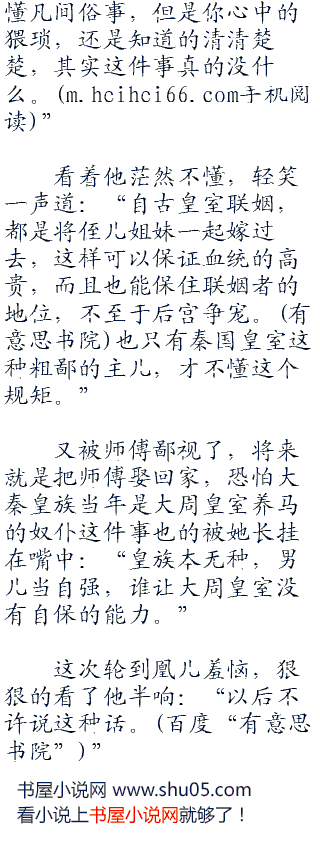 懂凡间俗事，但是你心中的
猥琐，还是知道的清清楚
楚，其实这件事真的没什
么。(m.hcihci66.com手机阅
读)”
看着他茫然不懂，轻笑
一声道：“自古皇室联姻，
都是将侄儿姐妹一起嫁过
去，这样可以保证血统的高
贵，而且也能保住联姻者的
地位，不至于后宫争宠。(有
意思书院)也只有秦国皇室这
种粗鄙的主儿，才不懂这个
规矩。”
又被师傅鄙视了，将来
就是把师傅娶回家，恐怕大
秦皇族当年是大周皇室养马
的奴仆这件事也的被她长挂
在嘴中：“皇族本无种，男
儿当自强，谁让大周皇室没
有自保的能力。”
这次轮到凰儿羞恼，狠
狠的看了他半响：“以后不
许说这种话。(百度“有意思
书院”)”
书屋小说网 www.shu05.com
看小说上书屋小说网就够了！